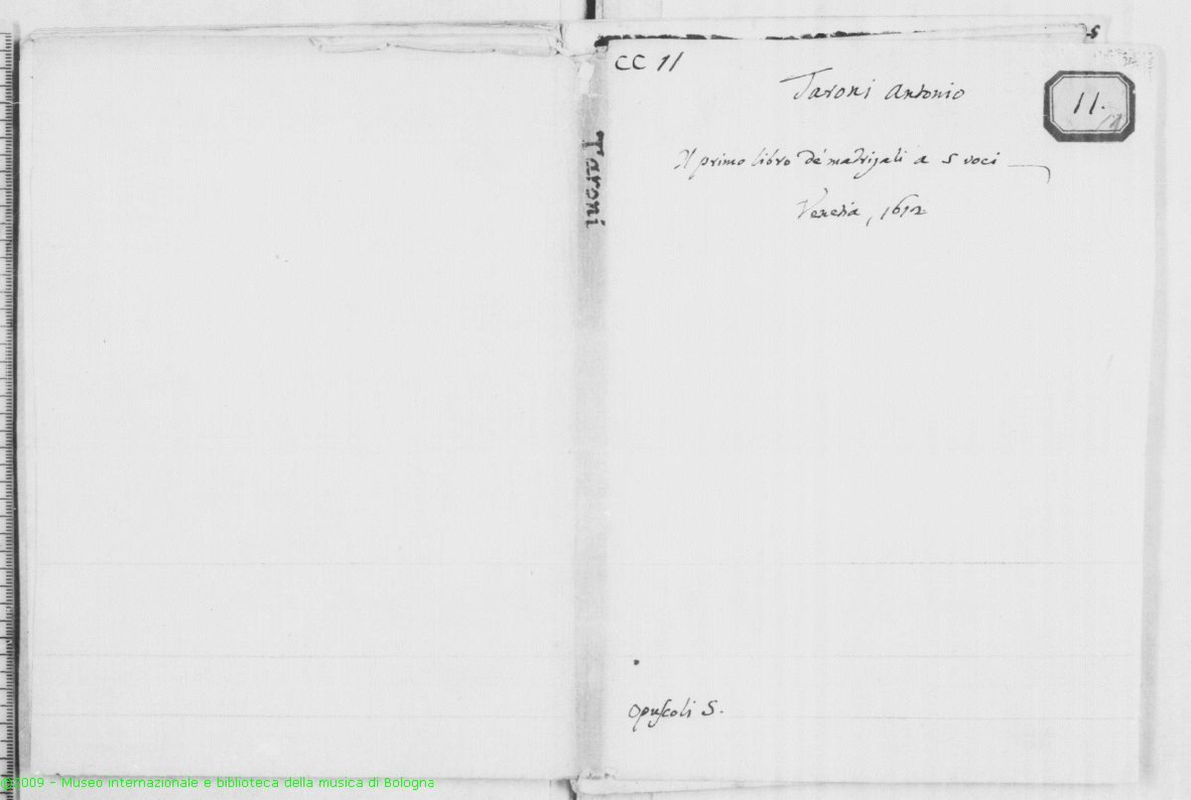 Taroni
CC 11
Taroni Antonio
11.
Il primo libro de' madrigali a 5 voci
Venezia, 1612
Opuscoli 5.
©2009 - Museo internazionale e biblioteca della musica di Bologna